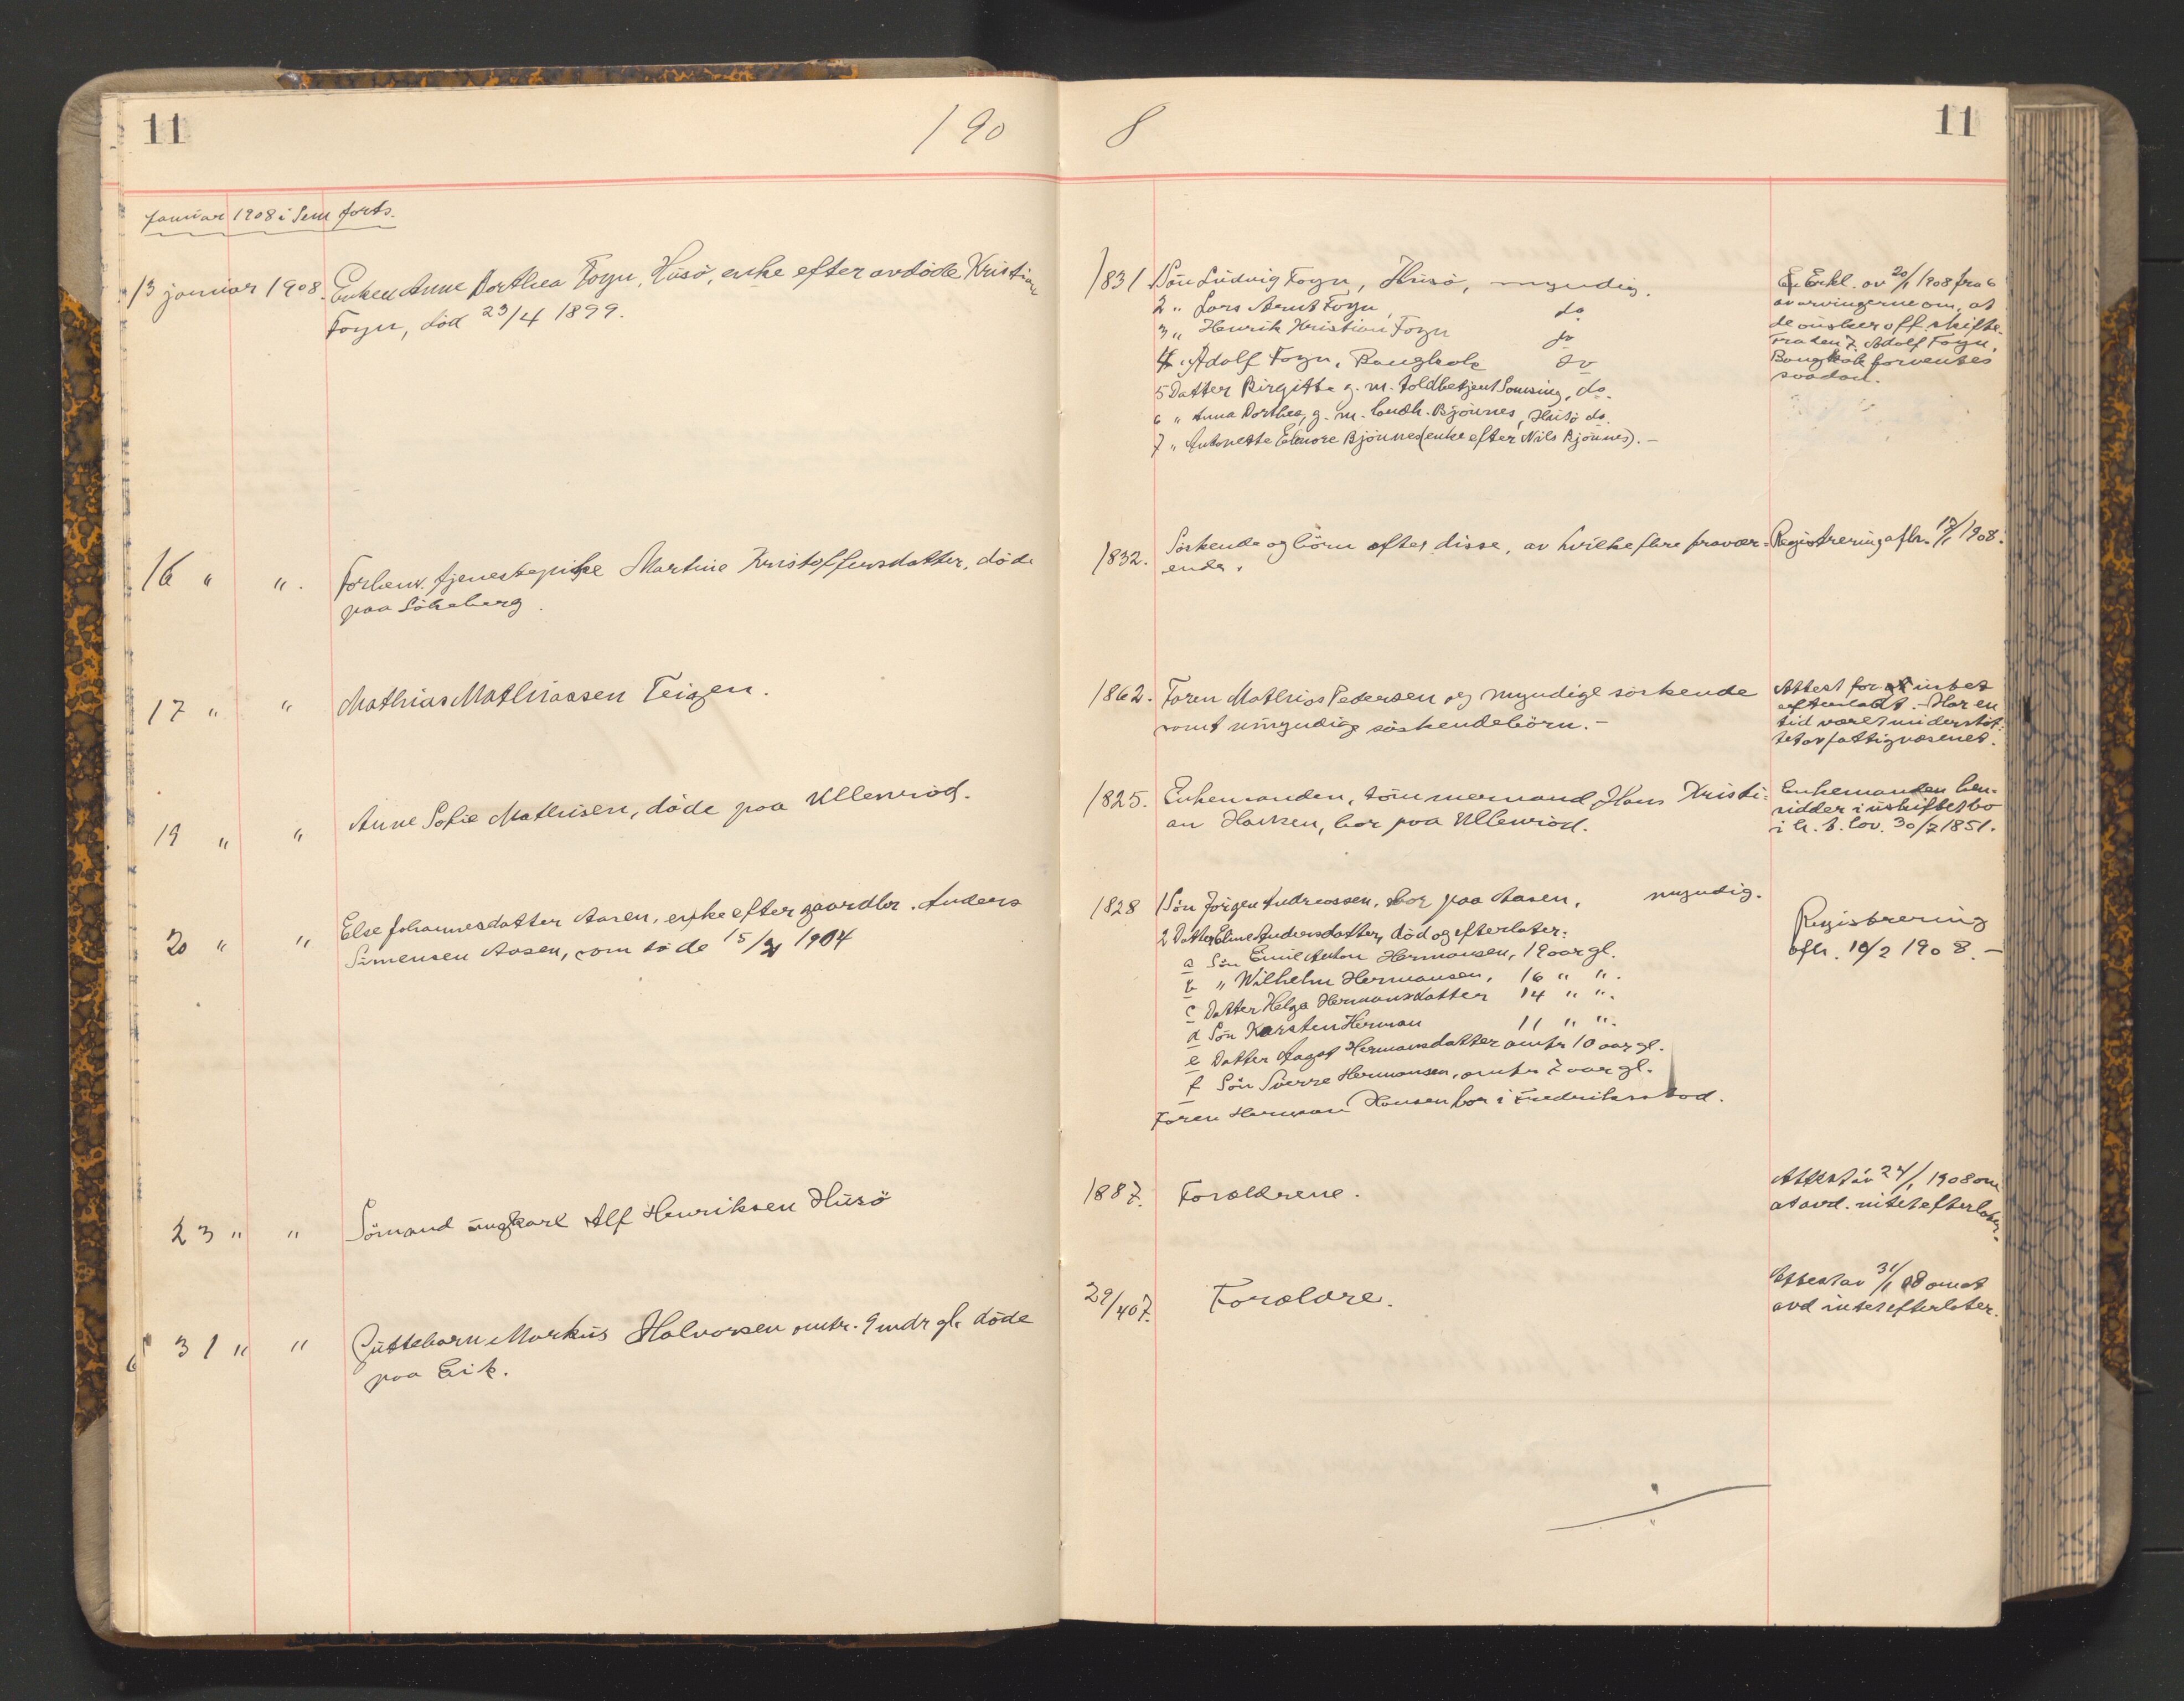 11
190
8
11
Januar 1908 i Sem forts.
13 januar 1908. Enken Anne Dorthea Foyn, Húsö, enke efter avdöde Kristian
Foyn, död 23/4 1899.
1831
1 Sön Lúdvig Foyn, Húsö, myndig.
2 " Lars Arnt Foyn, do
3 " Henrik Kristian Foyn do
4 " Adolf Foyn, Bangkok do
5 Datter Birgitte g. m. toldbetjent Sonsing, do.
6 " Anna Dorthea, g. m. landh. Bjönnes, Húsö do.
7 " Antonette Elenore Bjönnes (enke efter Nils Bjönnes). -
Erkl. av 20/1 1908 fra 6
av arvingerne om, at
de önsker off. skifte.
Fra den 7. Adolf Foyn,
Bangkok forventes
saadan.
16 " ". Forhenv. tjenestepike Martine Kristoffersdatter, döde
paa Sökeberg.
1832. Söskende og börn efter disse, av hvilke flere fravær=
ende.
Registrering afh. 17/1 1908.
17 " " Mathias Mathiassen Teigen.
1862. Faren Mathias Pedersen og myndige söskende
samt úmyndig söskendebörn. -
Attest for at intet
efterlatt. - Har en
tid været understöt=
tet av fattigvæsenet.
19 " " Anne Sofie Mathisen, döde paa Ullenröd.
1825. Enkemanden, tömmermand Hans Kristi=
an Hansen, bor paa Ullenröd.
Enkemanden hen=
sidder i úskiftet bo
i h. t. lov. 30/7 1851.
20 " " Else Johannesdatter Aasen, enke efter gaardbr. Anders
Simensen Aasen, som döde 15/2 1904
1828
1 Sön Jörgen Andreassen, bor paa Aasen, myndig.
2 Datter Eline Andersdatter, död og efterlater:
a Sön Emil Anton Hermansen, 19 aar gl.
b " Wilhelm Hermansen, 16 " ".
c Datter Helga Hermansdatter 14 " ".
d Sön Karsten Herman 11 " ".
e Datter Aagot Hermansdatter omtr 10 aar gl.
f Sön Sverre Hermansen, omtr 7 aar gl.
Faren Herman Hansen bor i Fredriksstad.
Registrering
afh. 10/2 1908. -
23 " " Sömand úngkarl Alf Henriksen Húsö
1887. Forældrene.
Attest av 24/1 1908 om
at avd. intet efterlater.
31 " " Gúttebarn Markús Halvorsen omtr. 9 mdr gl. döde
paa Eik.
29/4 07. Forældre.
Attest av 31/1 08 om at
avd intet efterlater.